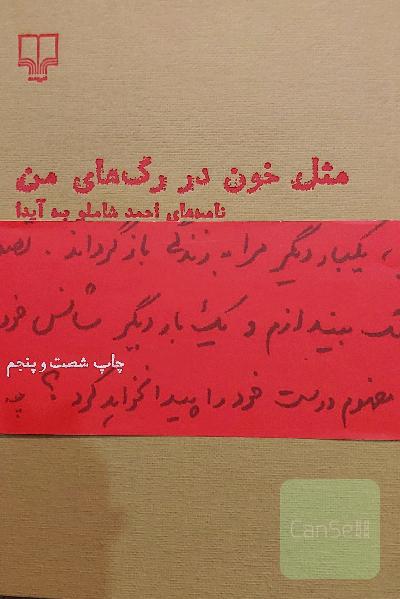 مثل خون در رگ‌های من
نامه‌های احمد شاملو به آیدا
یکبار دیگر مرا به زندگی بازگرداند.
بیندازم و یک بار دیگر شانس خود
چاپ شصت و پنجم
مفهوم درست خود را پیدا نخواهد کرد؟
CanSell